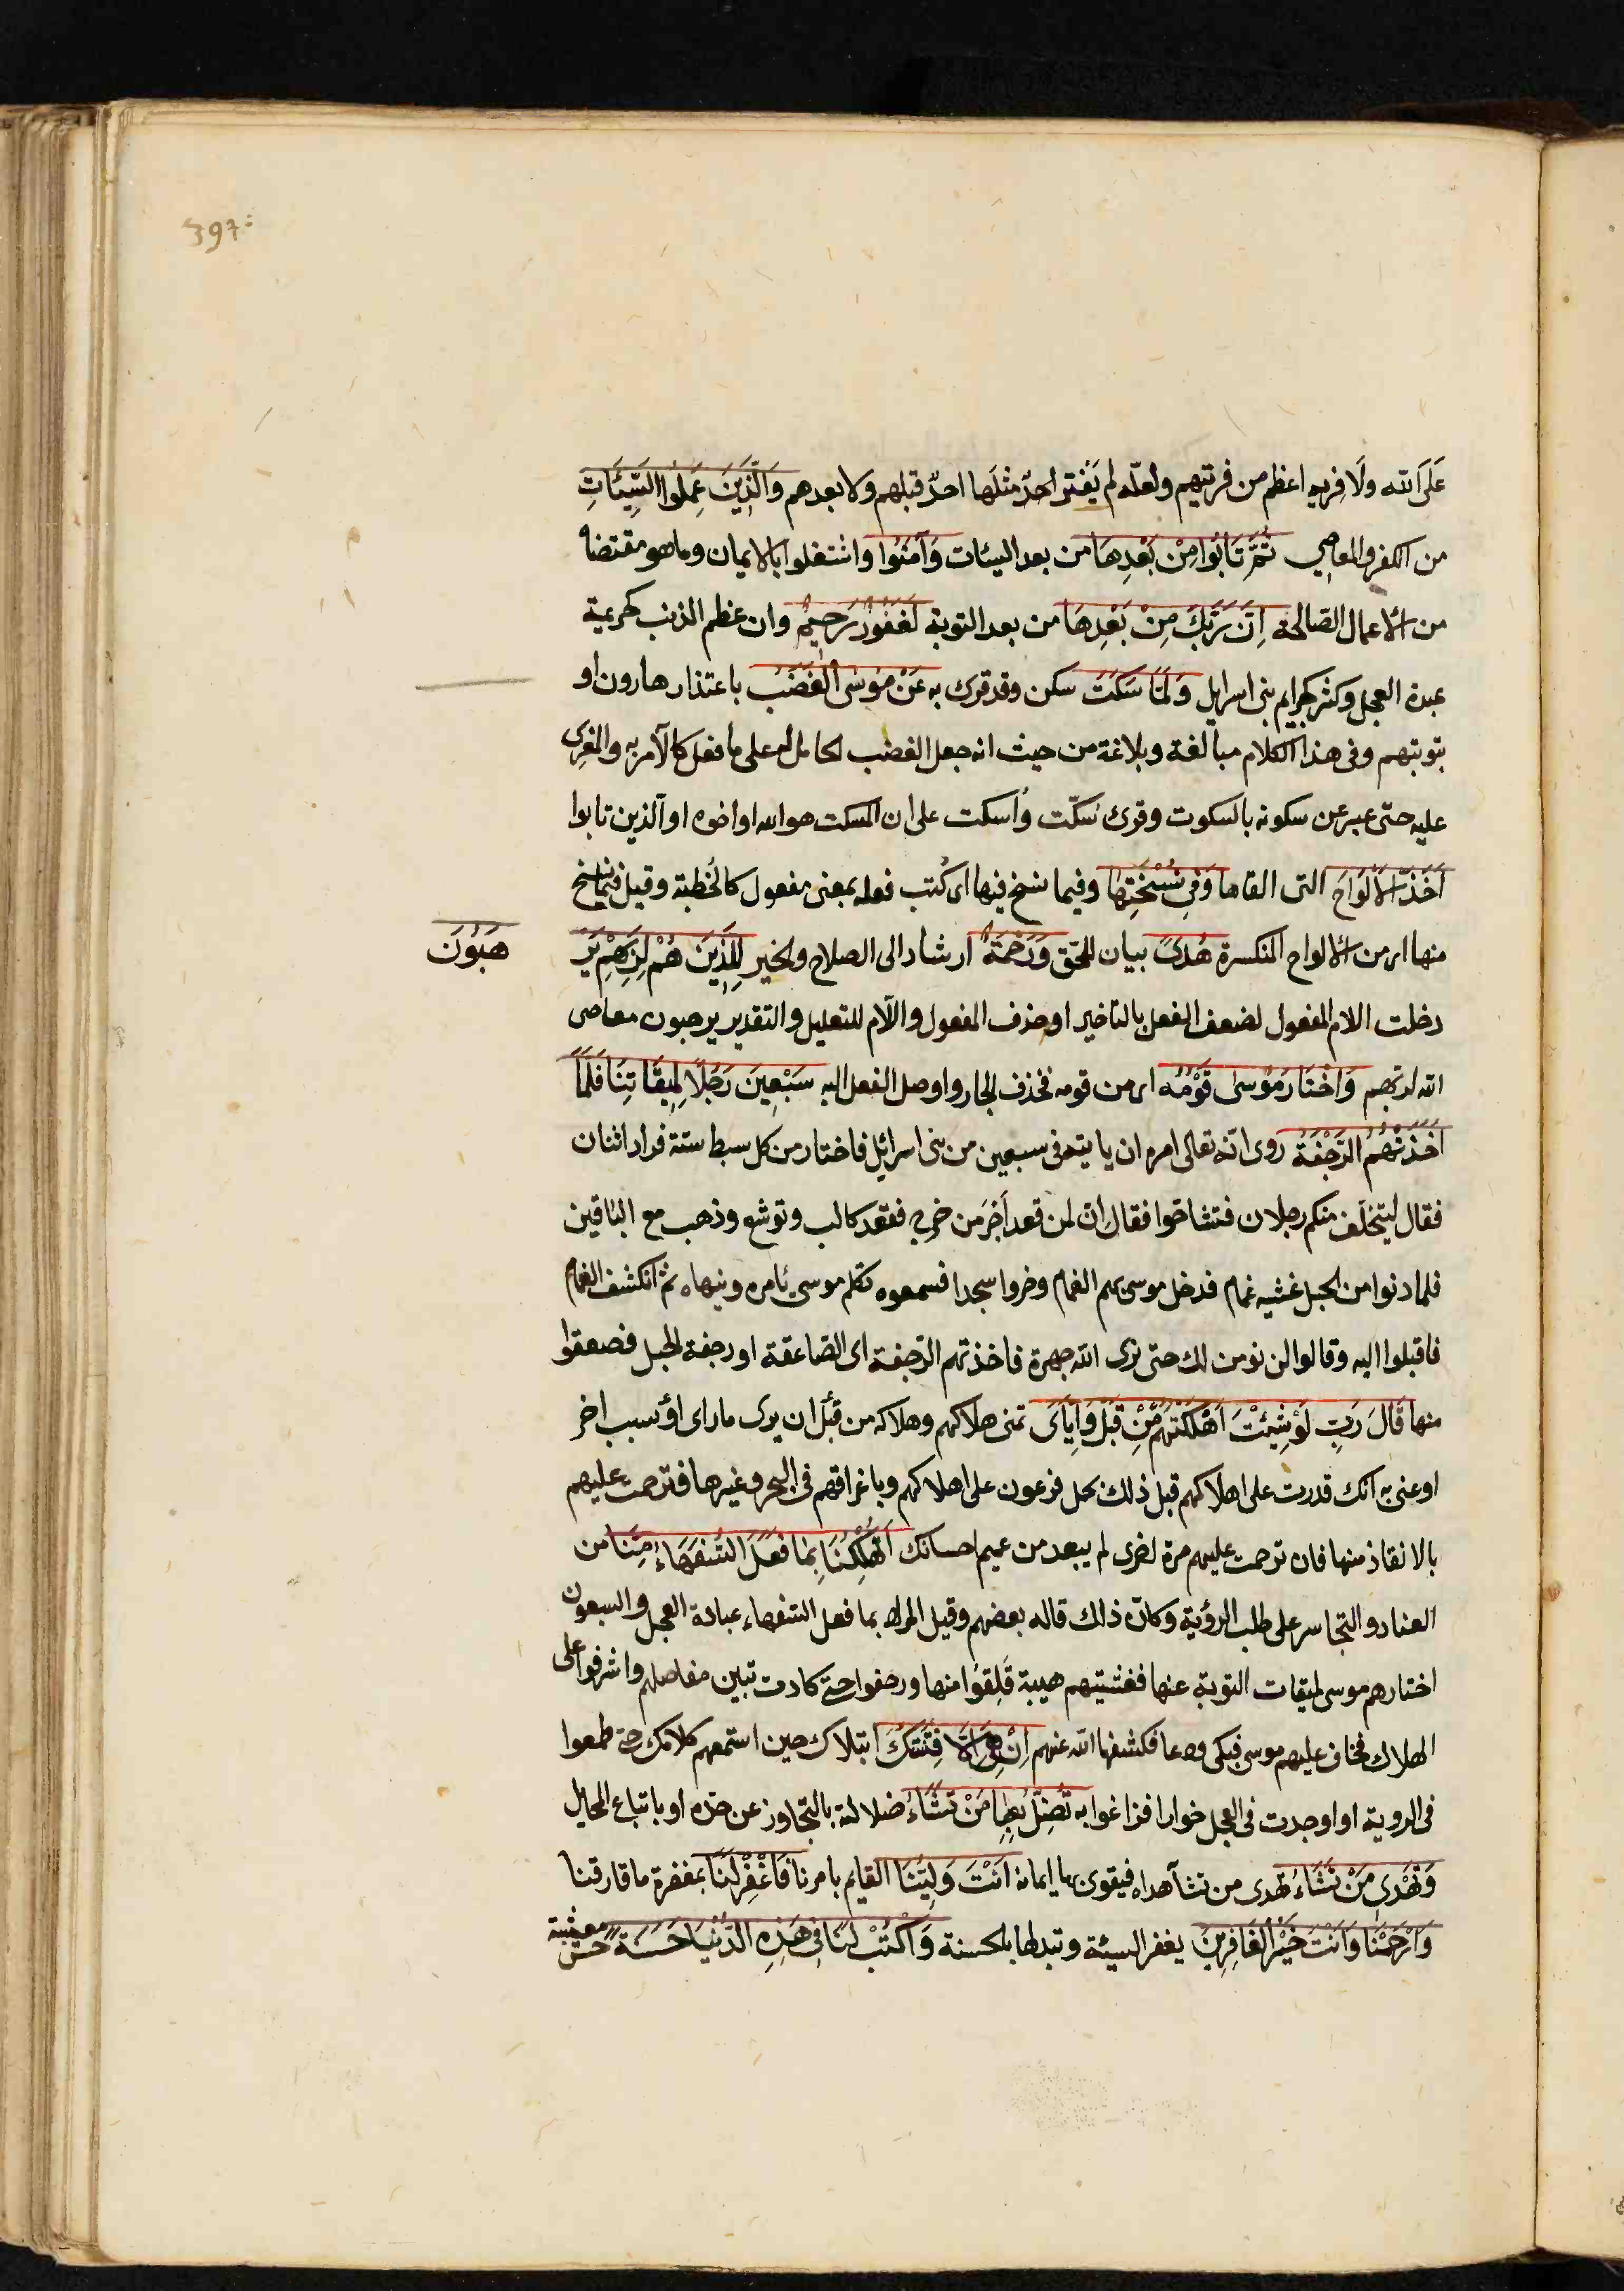 397
عَلَى الله ولَا فِرية اعظم من فرتيهم ولعلّه لم يَفْتَر احدٌ مثلَها احدٌ قبلهم ولا بعدهم وَالَّذِينَ عَمِلُوا السَّيِّئَاتِ
من الكفر والمعاصي ثُمَّ تَابُوا مِنْ بَعْدِهَا من بعد السيئات وَآمَنُوا واشتغلوا بالايمان وما هو مقتضاه
من الاعمال الصّالحة اِنَّ رَبَّكَ مِنْ بَعْدِهَا من بعد التوبة لَغَفُورٌ رَحِيمٌ وان عظم الذنب كجريمة
عبدة العجل وكثر كجرايم بنى اسرايل وَلَمَّا سَكَتَ سكن وقد قرئ به عَنْ مُوسَى الْغَضَبُ باعتذار هارون او
بتوبتهم وفى هذا الكلام مبالغة وبلاغة من حيث انه جعل الغضب الحامل له على ما فعل كالآمر به والمغرى
عليه حتّى عبر عن سكونه بالسكوت وقرئ سُكّت واُسكت على ان المسكت هو الله او اخوه او الذين تابوا
اَخَذَ الْاَلْوَاحَ التى القاها وَفِى نُسْخَتِهَا وفيما نسخ فيها اى كُتب فعله بمعنى مفعول كالخطبة وقيل فيما نسخ
منها اى من الالواح المنكسرة هُدًى بيان للحق وَرَحْمَةٌ ارشاد الى الصلاح والخير لِلَّذِينَ هُمْ لِرَبِّهِمْ يَرْ
هَبُونَ
دخلت اللام المفعول لضعف الفعل بالتاخير او حذف المفعول واللّام للتعليل والتقدير يرهبون معاصى
الله لربّهم وَاخْتَارَ مُوسَى قَوْمَهُ اى من قومه فحذف الجار واوصل الفعل اليه سَبْعِينَ رَجُلًا لِمِيقَاتِنَا فَلَمَّا
اَخَذَتْهُمُ الرَّجْفَةُ روى انّه تعالى امره ان ياتيه فى سبعين من بنى اسرائيل فاختار من كل سبط ستة فزاد اثنان
فقال ليتخلّف منكم رجلان فتشاحّوا فقال انّ لمن قعد اَجْرَ من خرج فقعد كالب ويوشع وذهب مع الباقين
فلما دنوا من الجبل غشيه غمام فدخل موسى بهم الغمام وخروا سجدا فسمعوه تكلم موسى يامره وينهاه ثم انكشف الغمام
فاقبلوا اليه وقالوا لن نومن لك حتى نرى الله جهرة فاخذتهم الرّجفة اى الصّاعقة او رجفة الجبل فصعقوا
منها قَالَ رَبِّ لَوْ شِئْتَ اَهْلَكْتَهُمْ مِنْ قَبْلُ وَاِيَّاىَ تمنى هلاكهم وهلاكه من قبل ان يرى ما راى او بسبب اخر
او عنى به انك قدرت على اهلاكهم قبل ذلك بحمل فرعون على اهلاكهم وباغراقهم فى البحر وغيرها فترحمت عليهم
بالانقاذ منها فان ترحمت عليهم مرة اخرى لم يبعد من عميم احسانك اَتُهْلِكُنَا بِمَا فَعَلَ السُّفَهَاءُ مِنَّا من
العناد والتجاسر على طلب الرؤية وكانّ ذلك قاله بعضهم وقيل المراد بما فعل السفهاء عبادة العجل والسبعون
اختارهم موسى لميقات التوبة عنها فغشيتهم هيبة قَلِقوا منها ورجفوا حتى كادت تبين مفاصلهم واشرفوا على
الهلاك فخاف عليهم موسى فبكى ودعا فكشفها الله عنهم اِنْ هِىَ اِلَّا فِتْنَتُكَ ابتلاك حين استمعهم كلامك حتى طمعوا
فى الروية او اوجدت فى العجل خوارا فزاغوا به تُضِلُّ بِهَا مَنْ تَشَاءُ ضلالة بالتجاوز عن حدّه او باتباع المخايل
وَتَهْدِى مَنْ تَشَاءُ هُدى من تشآ هداه فيقوى بها ايمانه اَنْتَ وَلِيُّنَا القايم بامرنا فَاغْفِرْ لَنَا بمغفرة ما قارفنا
وَارْحَمْنَا وَاَنْتَ خَيْرُ الْغَافِرِينَ يغفر السيئة وتبدلها بالحسنة وَاكْتُبْ لَنَا فِى هَذِهِ الدُّنْيَا حَسَنَةً حسن معيشة